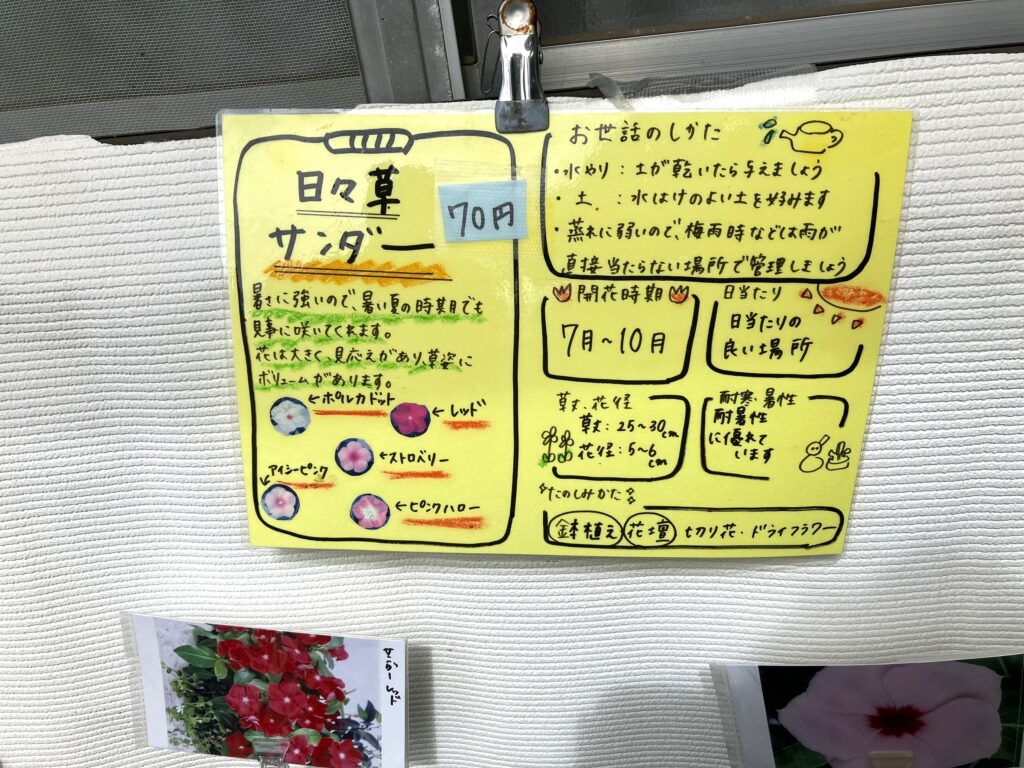 日々草
サンダー
70円
暑さに強いので、暑い夏の時期でも
見事に咲いてくれます。
花は大きく、見応えがあり、草姿に
ボリュームがあります。
←ポルカドット
←レッド
←ストロベリー
アイシーピンク
←ピンクハロー
お世話のしかた
・水やり：土が乾いたら与えましょう
・土　：水はけのよい土を好みます
・蒸れに弱いので、梅雨時などは雨が
直接当たらない場所で管理しましょう
開花時期
7月〜10月
日当たり
日当たりの
良い場所
草丈、花径
草丈：25〜30cm
花径：5〜6cm
耐寒・暑性
耐暑性
に優れて
います
たのしみかた
鉢植え 花壇 切り花・ドライフラワー
サンダー レッド